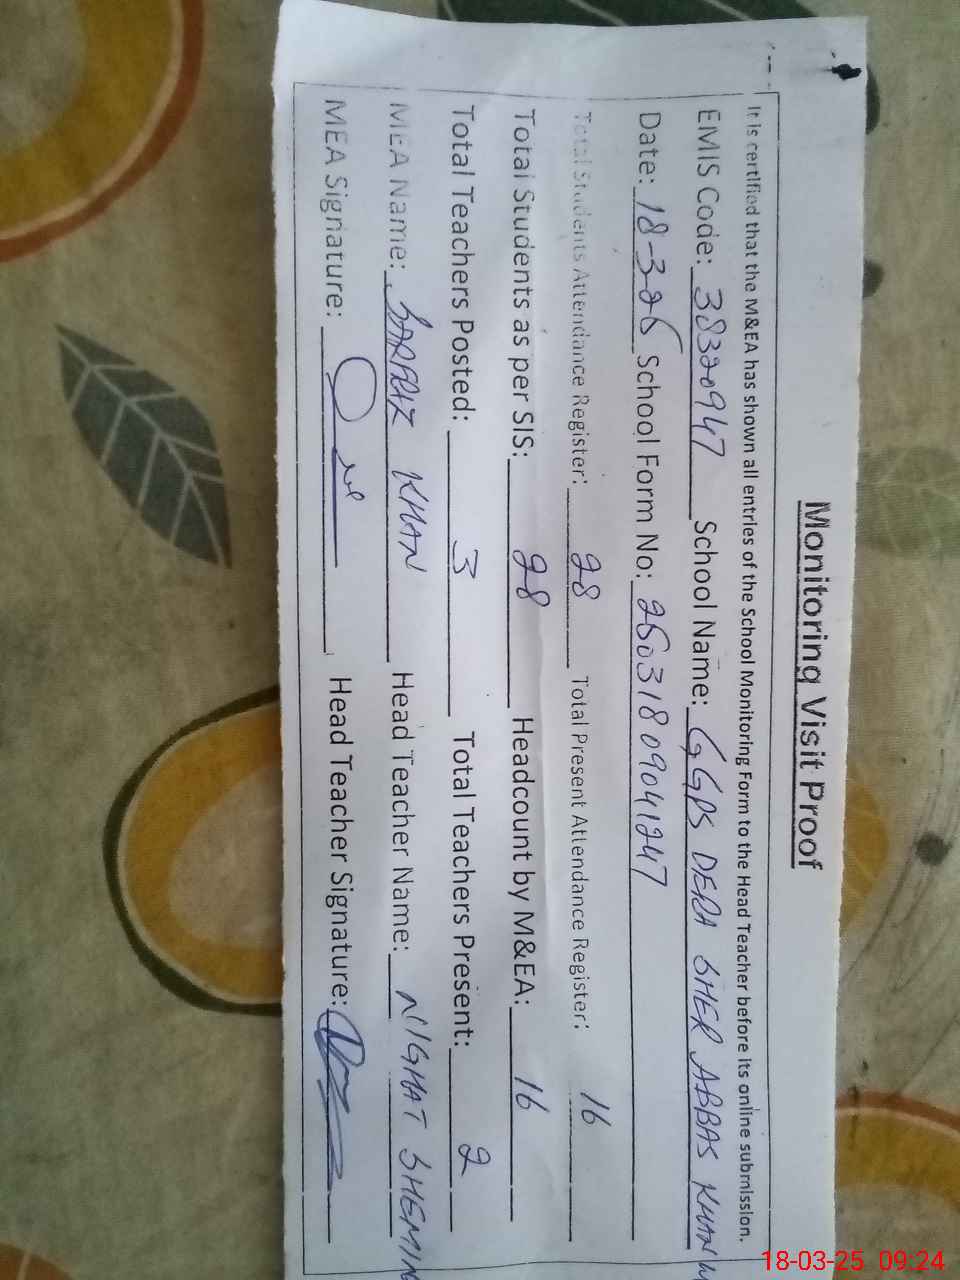 Monitoring Visit Proof
It is certified that the M&EA has shown all entries of the School Monitoring Form to the Head Teacher before its online submission.
EMIS Code: 38320947 School Name: GGPS DERA SHER ABBAS KHAN W
Date: 18-3-25 School Form No: 2503180904247
Total Students Attendance Register: 28 Total Present Attendance Register: 16
Total Students as per SIS: 28 Headcount by M&EA: 16
Total Teachers Posted: 3 Total Teachers Present: 2
MEA Name: SARFRAZ KHAN Head Teacher Name: NIGHAT SHEMIN
MEA Signature: Head Teacher Signature:
18-03-25 09:24